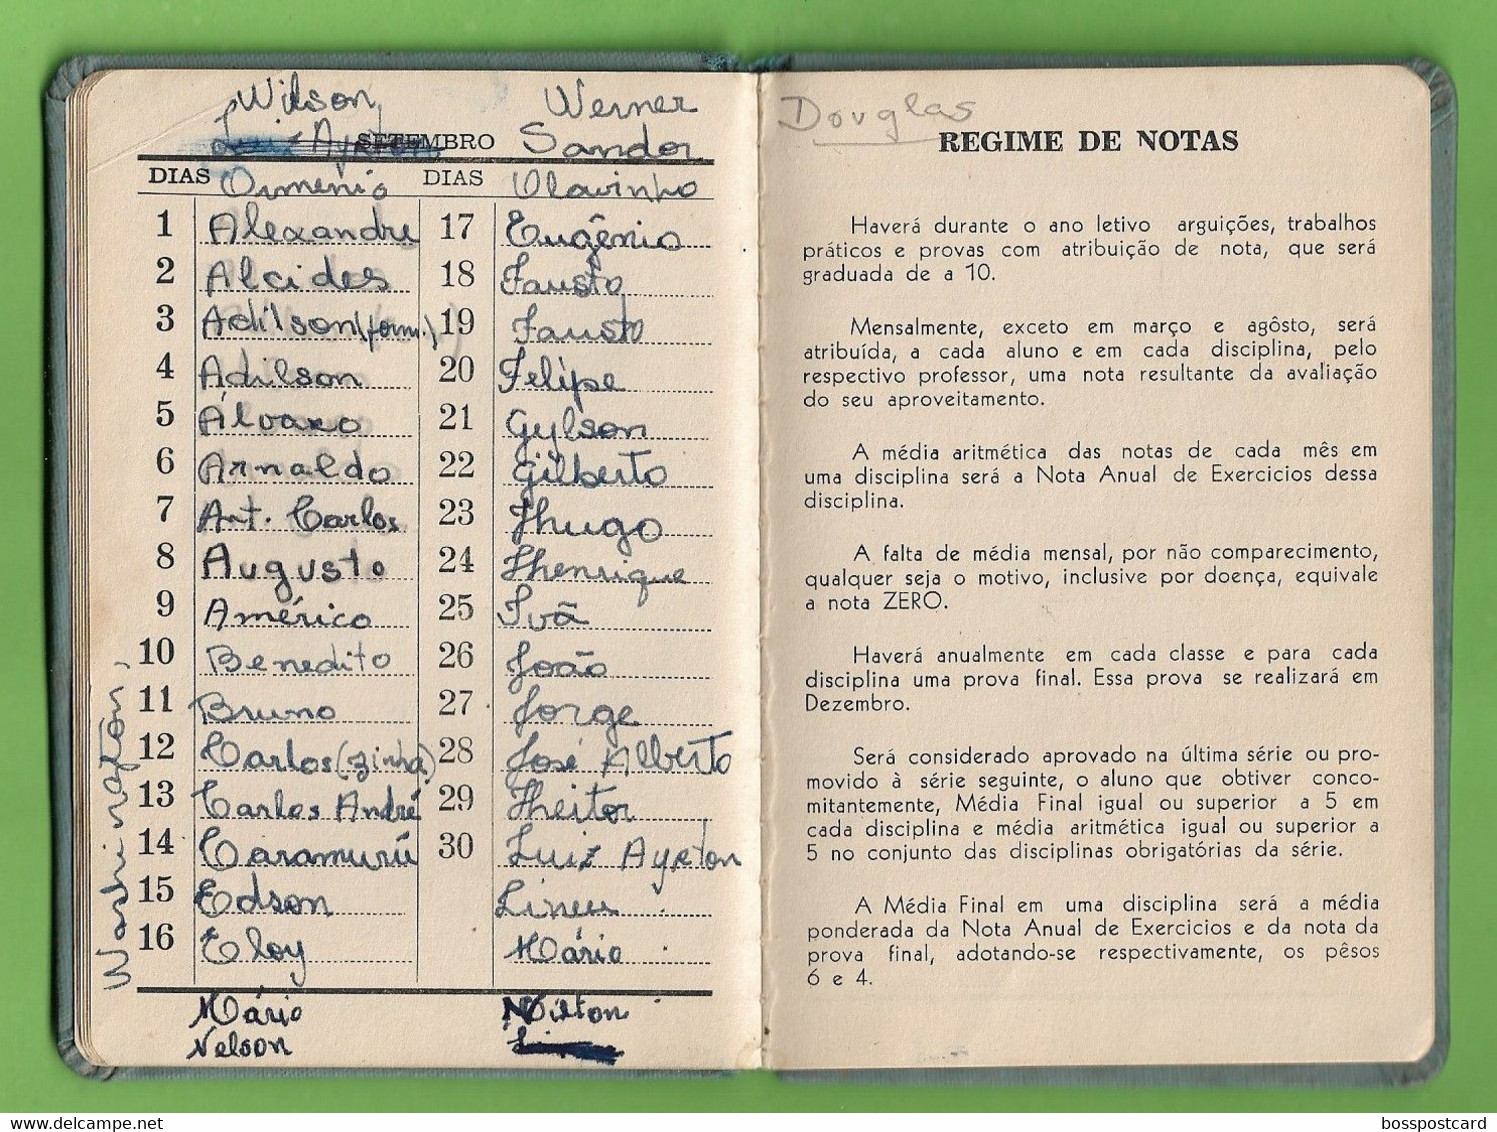 Wilson
Werner
Luiz Ayrton
SETEMBRO
Sandor
DIAS Ormenio
DIAS Olavinho
1 Alexandre
2 Alcides
3 Adilson (form.)
4 Adilson
5 Álvaro
6 Arnaldo
7 Ant. Carlos
8 Augusto
9 Américo
10 Benedito
11 Bruno
12 Carlos (zinho)
13 Carlos André
14 Caramurú
15 Edson
16 Eloy
17 Eugênio
18 Fausto
19 Fausto
20 Felipe
21 Gylson
22 Gilberto
23 Hugo
24 Henrique
25 Ivã
26 João
27 Jorge
28 José Alberto
29 Heitor
30 Luiz Ayrton
Lineu
Mário
Mário
Nelson
Milton
Washington,
Douglas
REGIME DE NOTAS
Haverá durante o ano letivo arguições, trabalhos
práticos e provas com atribuição de nota, que será
graduada de a 10.
Mensalmente, exceto em março e agôsto, será
atribuída, a cada aluno e em cada disciplina, pelo
respectivo professor, uma nota resultante da avaliação
do seu aproveitamento.
A média aritmética das notas de cada mês em
uma disciplina será a Nota Anual de Exercicios dessa
disciplina.
A falta de média mensal, por não comparecimento,
qualquer seja o motivo, inclusive por doença, equivale
a nota ZERO.
Haverá anualmente em cada classe e para cada
disciplina uma prova final. Essa prova se realizará em
Dezembro.
Será considerado aprovado na última série ou pro-
movido à série seguinte, o aluno que obtiver conco-
mitantemente, Média Final igual ou superior a 5 em
cada disciplina e média aritmética igual ou superior a
5 no conjunto das disciplinas obrigatórias da série.
A Média Final em uma disciplina será a média
ponderada da Nota Anual de Exercicios e da nota da
prova final, adotando-se respectivamente, os pêsos
6 e 4.
bosspostcard